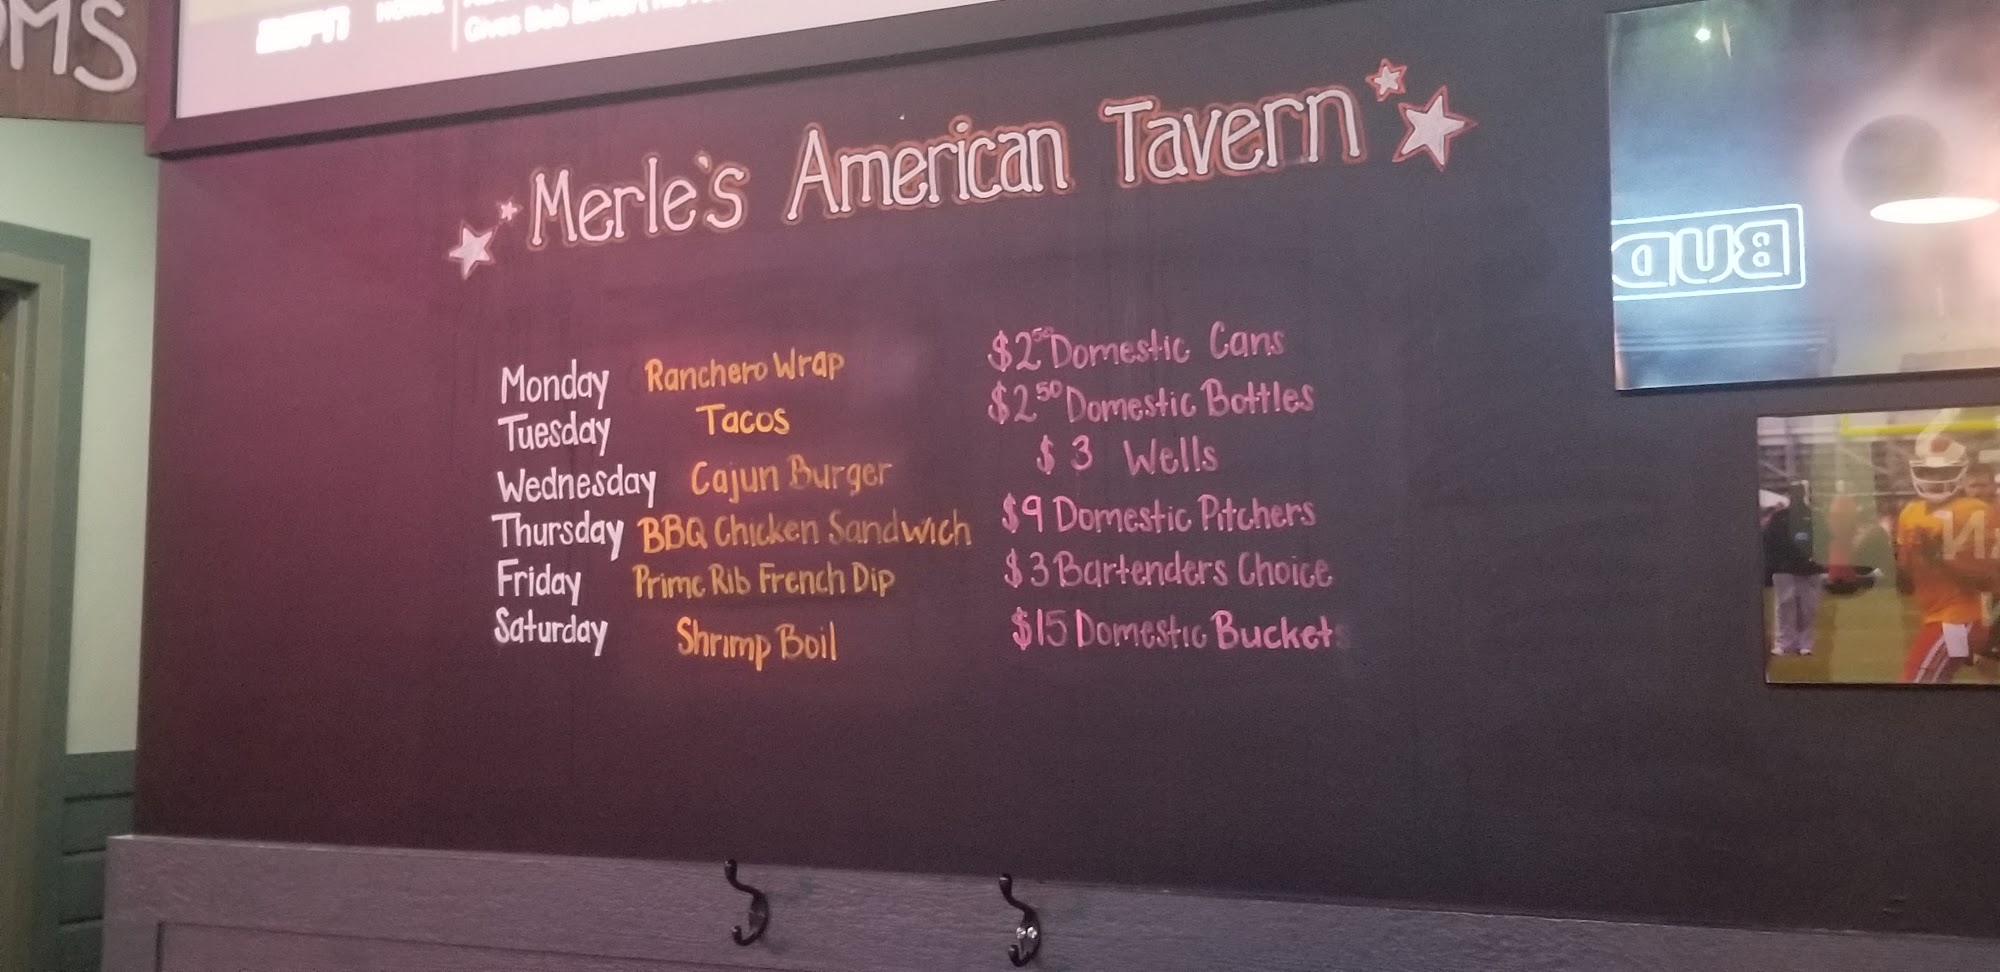 OMS
ESPN
Merle's American Tavern
BUD
Monday Ranchero Wrap $2.50 Domestic Cans
Tuesday Tacos $2.50 Domestic Bottles
Wednesday Cajun Burger $3 Wells
Thursday BBQ Chicken Sandwich $9 Domestic Pitchers
Friday Prime Rib French Dip $3 Bartenders Choice
Saturday Shrimp Boil $15 Domestic Buckets